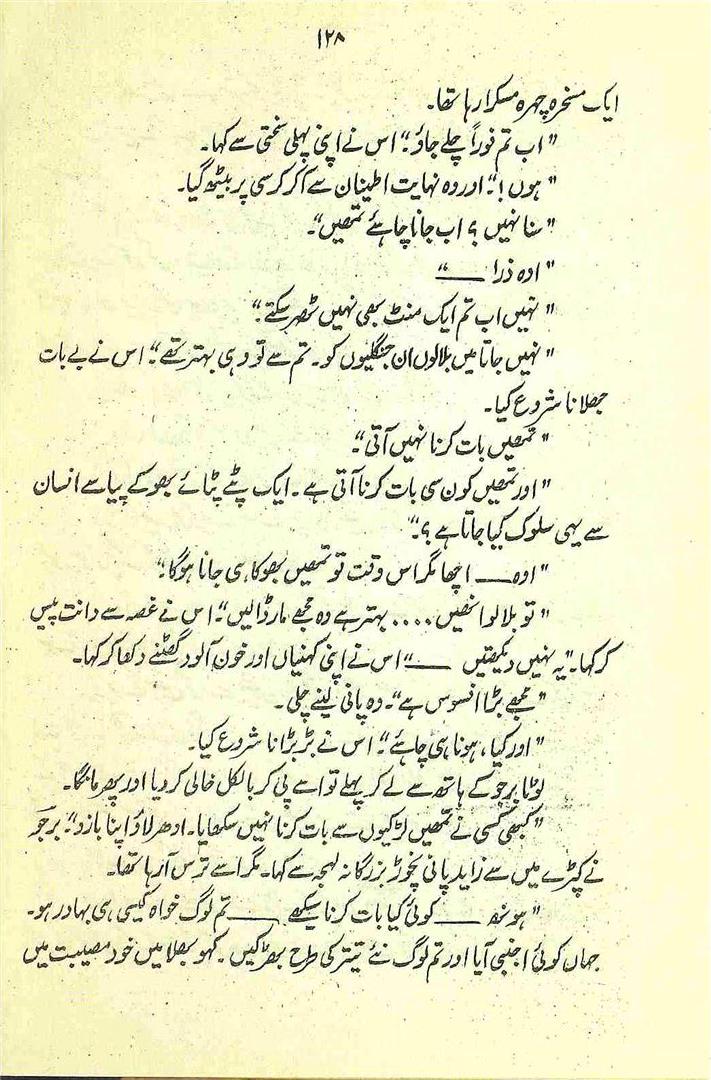 ۱۲۸
ایک مسخرہ چہرہ مسکرا رہا تھا۔
"اب تم فوراً چلے جاؤ۔" اس نے اپنی پہلی سختی سے کہا۔
"ہوں!۔" اور وہ نہایت اطینان سے اکر کرسی پر بیٹھ گیا۔
"سنا نہیں؟ اب جانا چاہئے تمھیں"۔
"اوہ ذرا ——"
"نہیں اب تم ایک منٹ بھی نہیں ٹھر سکتے۔"
"نہیں جاتا میں بلالوں ان جنگلیوں کو۔ تم سے تو وہی بہتر تھے"۔ اس نے بے بات
جھلانا شروع کیا۔
"تمھیں بات کرنا نہیں آتی"۔
"اور تمھیں کون سی بات کرنا آتی ہے۔ ایک پٹے پٹائے بھوکے پیاسے انسان
سے یہی سلوک کیا جاتا ہے؟۔"
"اوہ —— اچھا مگر اس وقت تو تمھیں بھوکا ہی جانا ہوگا۔"
"تو بلا لو انھیں .... بہتر ہے وہ مجھے مار ڈالیں"۔ اس نے غصہ سے دانت پیس
کر کہا۔ "یہ نہیں دیکھتیں ——" اس نے اپنی کہنیاں اور خون آلود گھٹنے دکھا کر کہا۔
"مجھے بڑا افسوس ہے"۔ وہ پانی لینے چلی۔
"اور کیا، ہونا ہی چاہئے"۔ اس نے بڑبڑانا شروع کیا۔
لوٹا برجو کے ہاتھ سے لے کر پہلے تو اسے پی کر بالکل خالی کر دیا اور پھر مانگا۔
"کبھی کسی نے تمھیں لڑکیوں سے بات کرنا نہیں سکھایا۔ ادھر لاؤ اپنا بازو"۔ برجو
نے کپڑے میں سے زاید پانی نچوڑ بزرگانہ لہجہ سے کہا۔ مگر اسے ترس آ رہا تھا۔
"ہونھ —— کوئی کیا بات کرنا سیکھے —— تم لوگ خواہ کیسی ہی بہادر ہو۔
جہاں کوئی اجنبی آیا اور تم لوگ نئے تیتر کی طرح بھڑکیں۔ کہو بھلا میں خود مصیبت میں